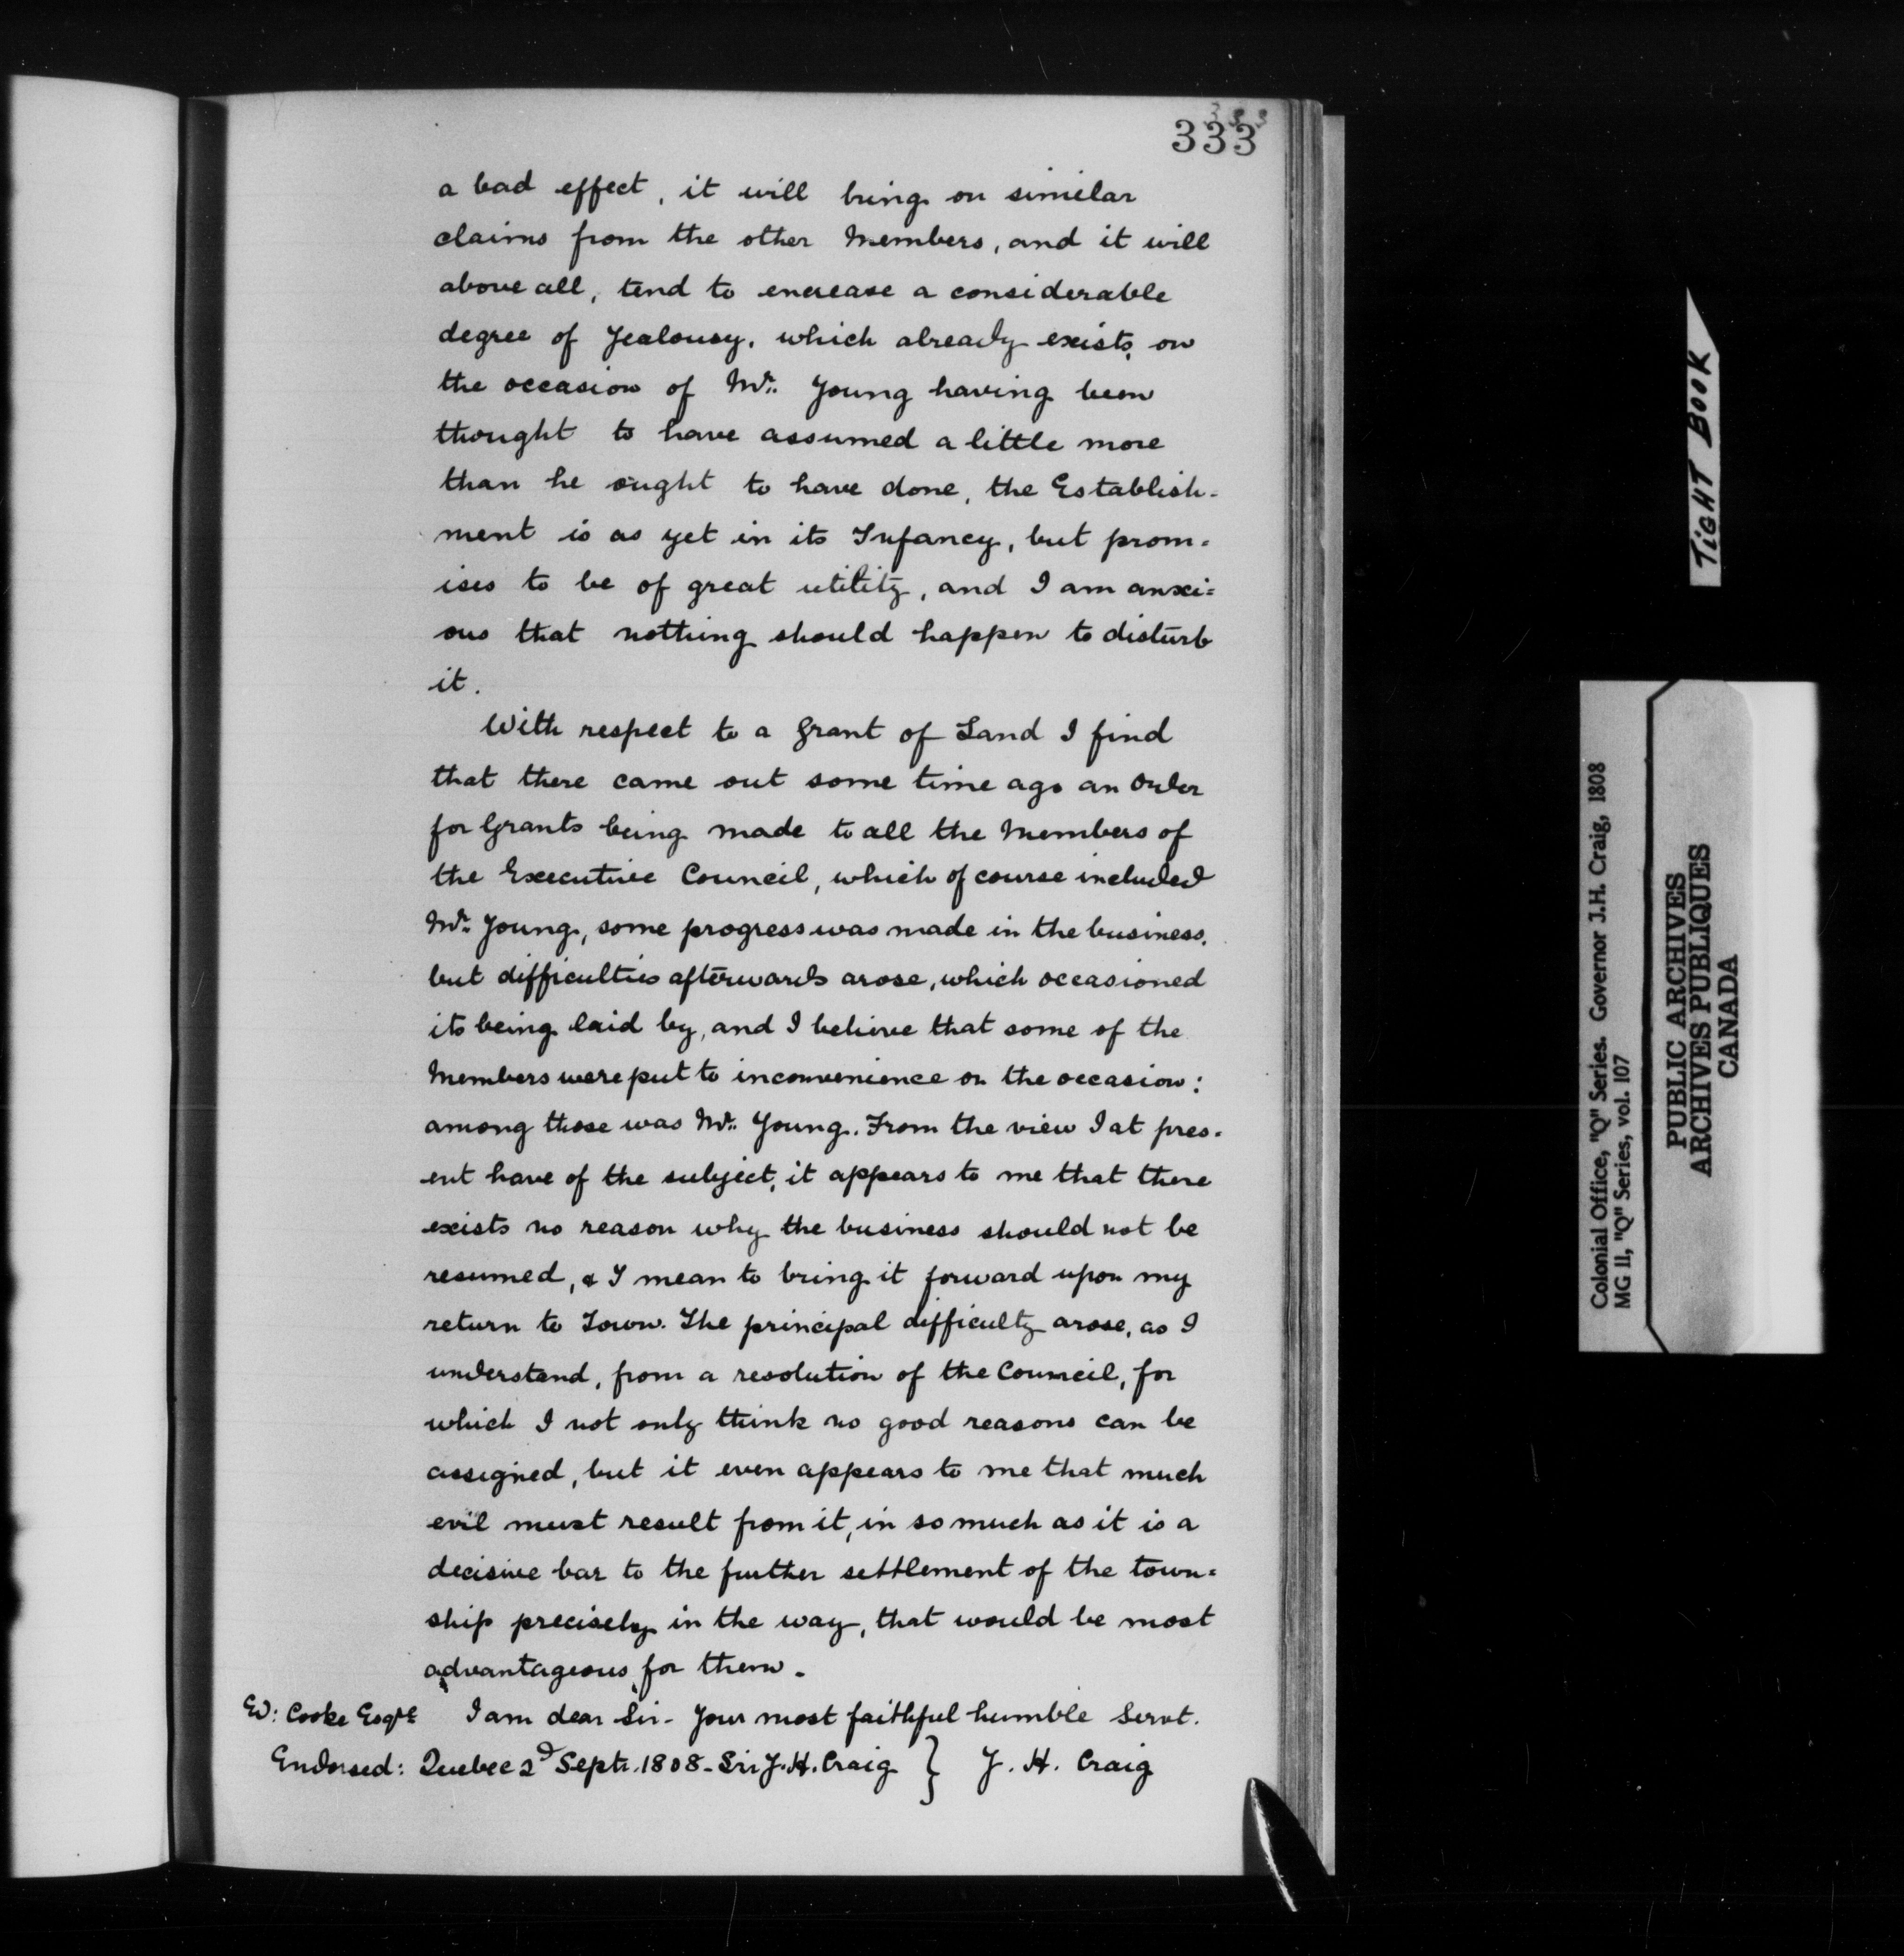 333
333
a bad effect, it will bring on similar
claims from the other Members, and it will
above all, tend to encrease a considerable
degree of Jealousy, which already exists, on
the occasion of Mr. Young having been
thought to have assumed a little more
than he ought to have done, the Establish-
ment is as yet in its Infancy, but prom=
ises to be of great utility, and I am anxi=
ous that nothing should happen to disturb
it.
With respect to a Grant of Land I find
that there came out some time ago an Order
for Grants being made to all the Members of
the Executive Council, which of course included
Mr. Young, some progress was made in the business,
but difficulties afterwards arose, which occasioned
its being laid by, and I believe that some of the
Members were put to inconvenience on the occasion:
among those was Mr. Young. From the view I at pres-
ent have of the subject, it appears to me that there
exists no reason why the business should not be
resumed, & I mean to bring it forward upon my
return to Town. The principal difficulty arose, as I
understand, from a resolution of the Council, for
which I not only think no good reasons can be
assigned, but it even appears to me that much
evil must result from it, in so much as it is a
decisive bar to the further settlement of the town=
ship precisely in the way, that would be most
advantageous for them.
W: Cooke Esqre I am dear Sir - Your most faithful humble Servt.
Endorsed: Quebec 2d Septr. 1808 - Sir J. H. Craig } J. H. Craig
TIGHT BOOK
Colonial Office, "Q" Series. Governor J.H. Craig, 1808
MG 11, "Q" Series, vol. 107
PUBLIC ARCHIVES
ARCHIVES PUBLIQUES
CANADA